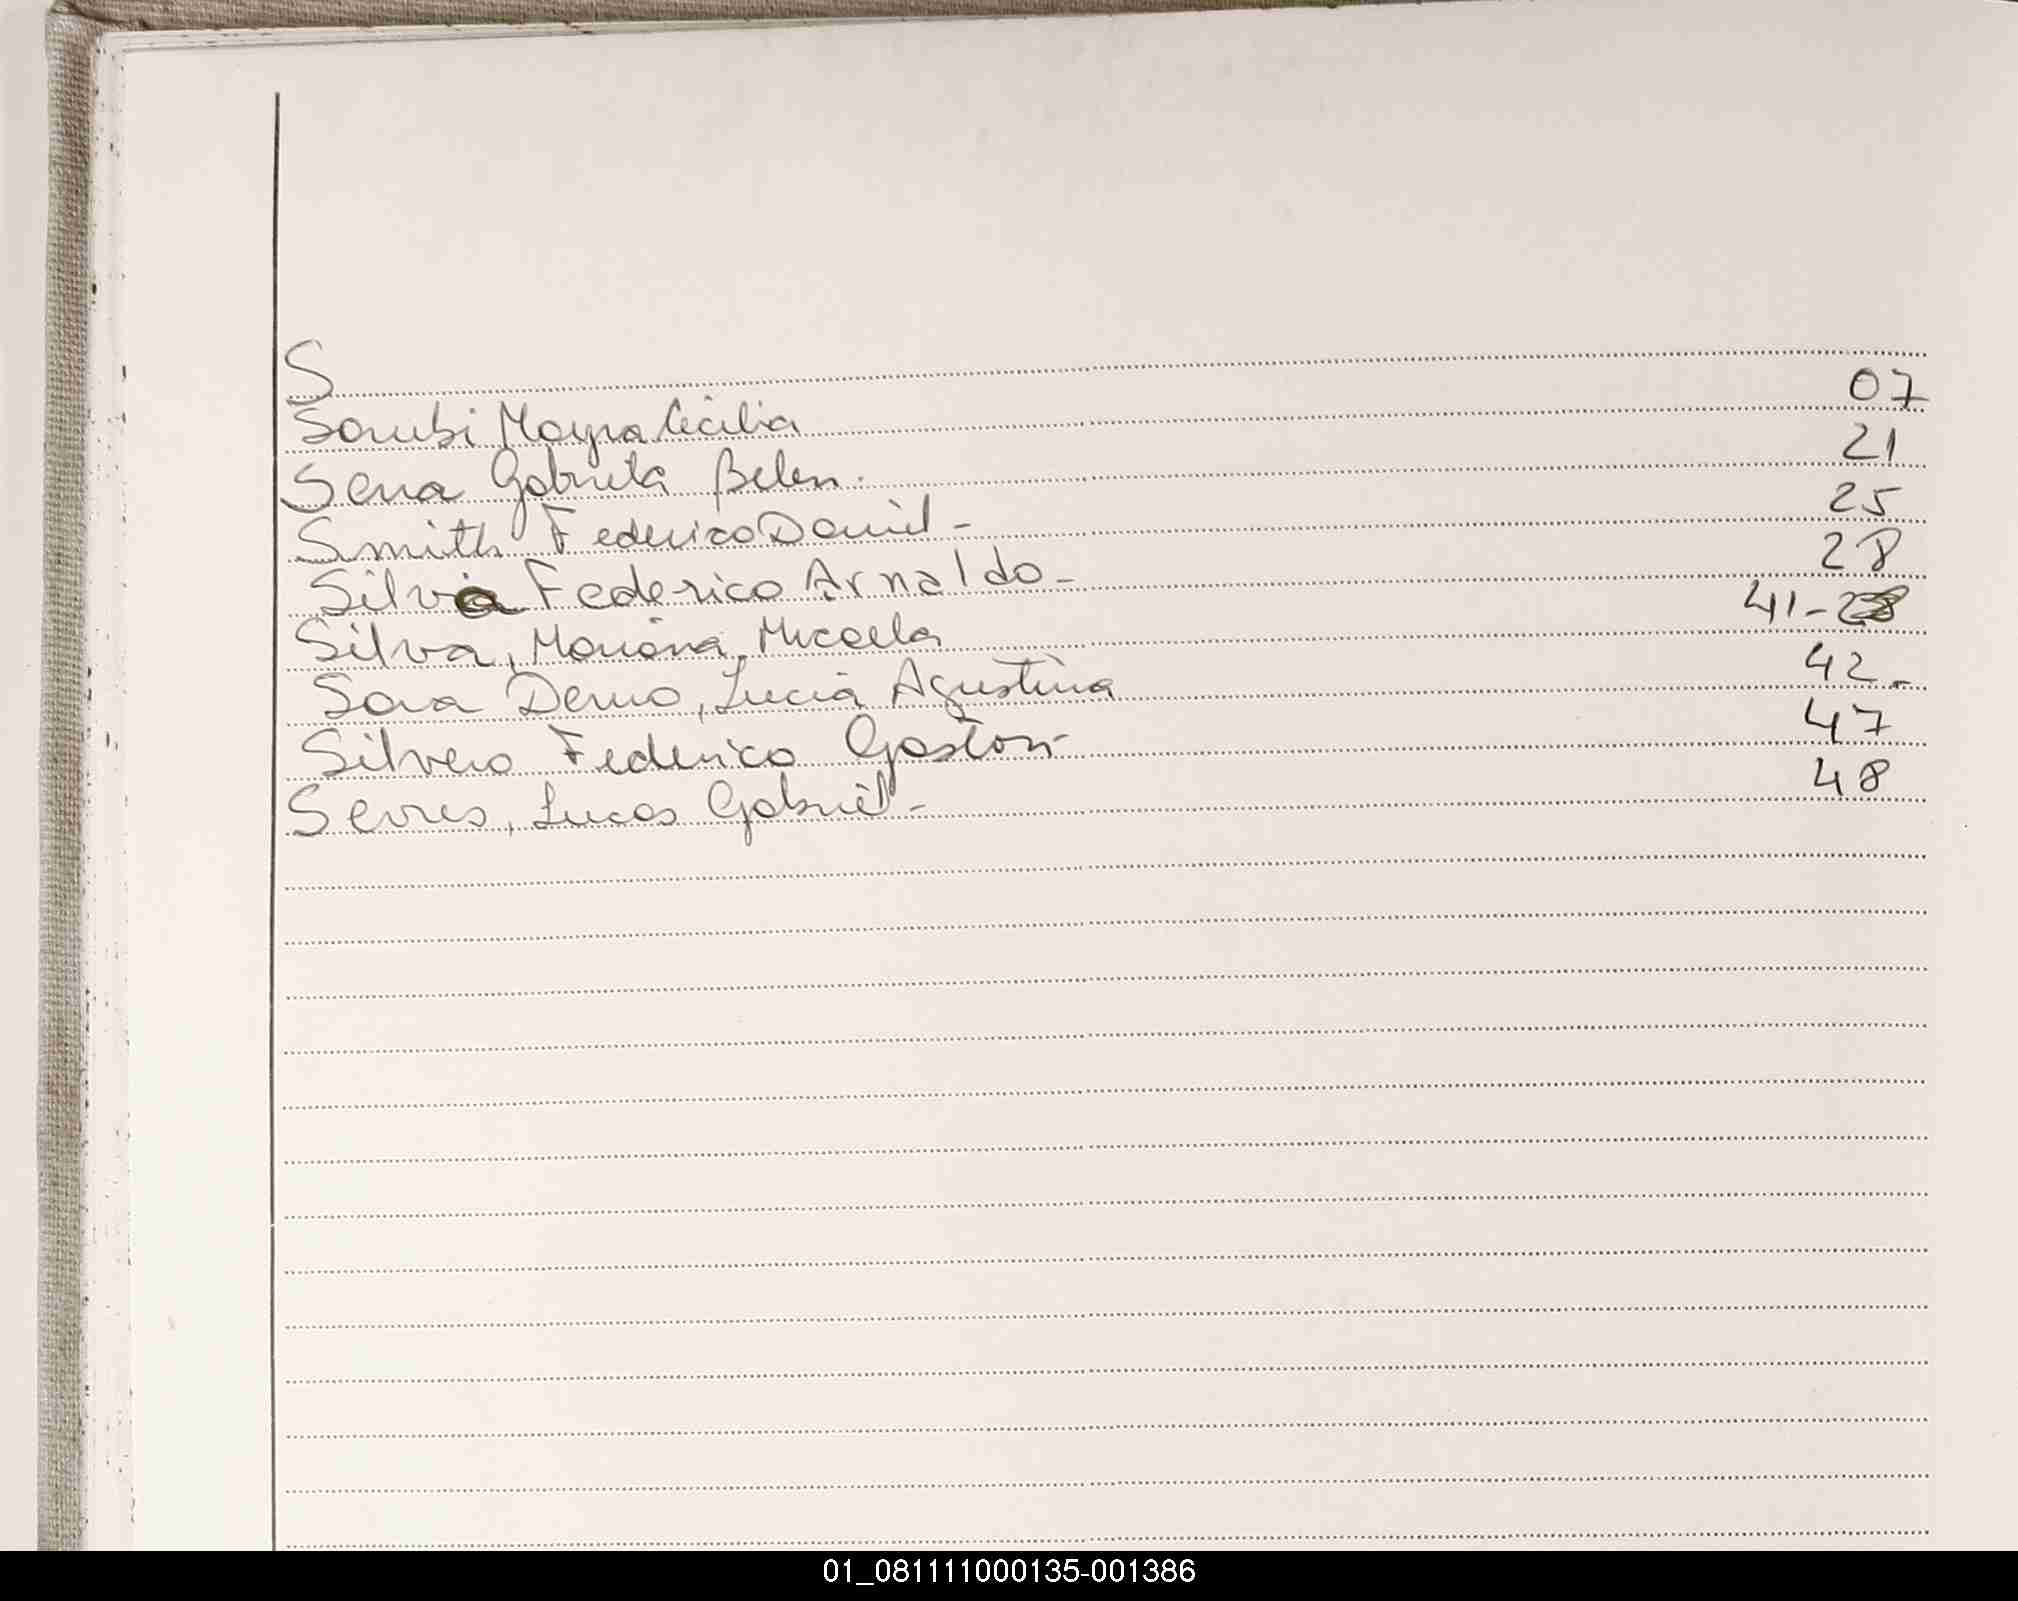 S
Saubi Mayra Cecilia 07
Sena Gabriela Belen. 21
Smith Federico Daniel - 25
Silva Federico Arnaldo - 28
Silva, Mariana Micaela 41-28
Sara Demo, Lucia Agustina 42-
Silvero Federico Gaston - 47
Serres, Lucas Gabriel - 48
01_081111000135-001386